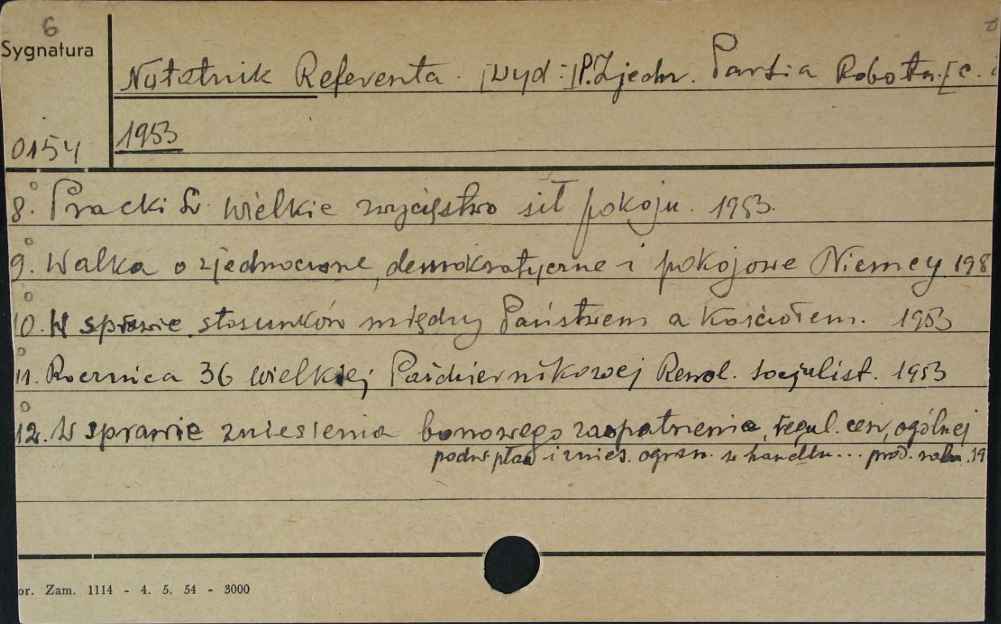 6
Sygnatura
0154
Notatnik Referenta. [Wyd:] P. Zjedn. Partia Robotn. [c.
1953
8. Pracki Wielkie zwycięstwo sił pokoju. 1953.
9. Walka o zjednoczone, demokratyczne i pokojowe Niemcy 198
10. W sprawie stosunków między Państwem a Kościołem. 1953
11. Rocznica 36 Wielkiej Październikowej Rewol. Socjalist. 1953
12. W sprawie zniesienia bonowego zaopatrzenia, regul. cen, ogólnej
podw. płac i znies. ogran. w handlu... prod. roln. 19
or. Zam. 1114 - 4. 5. 54 - 3000